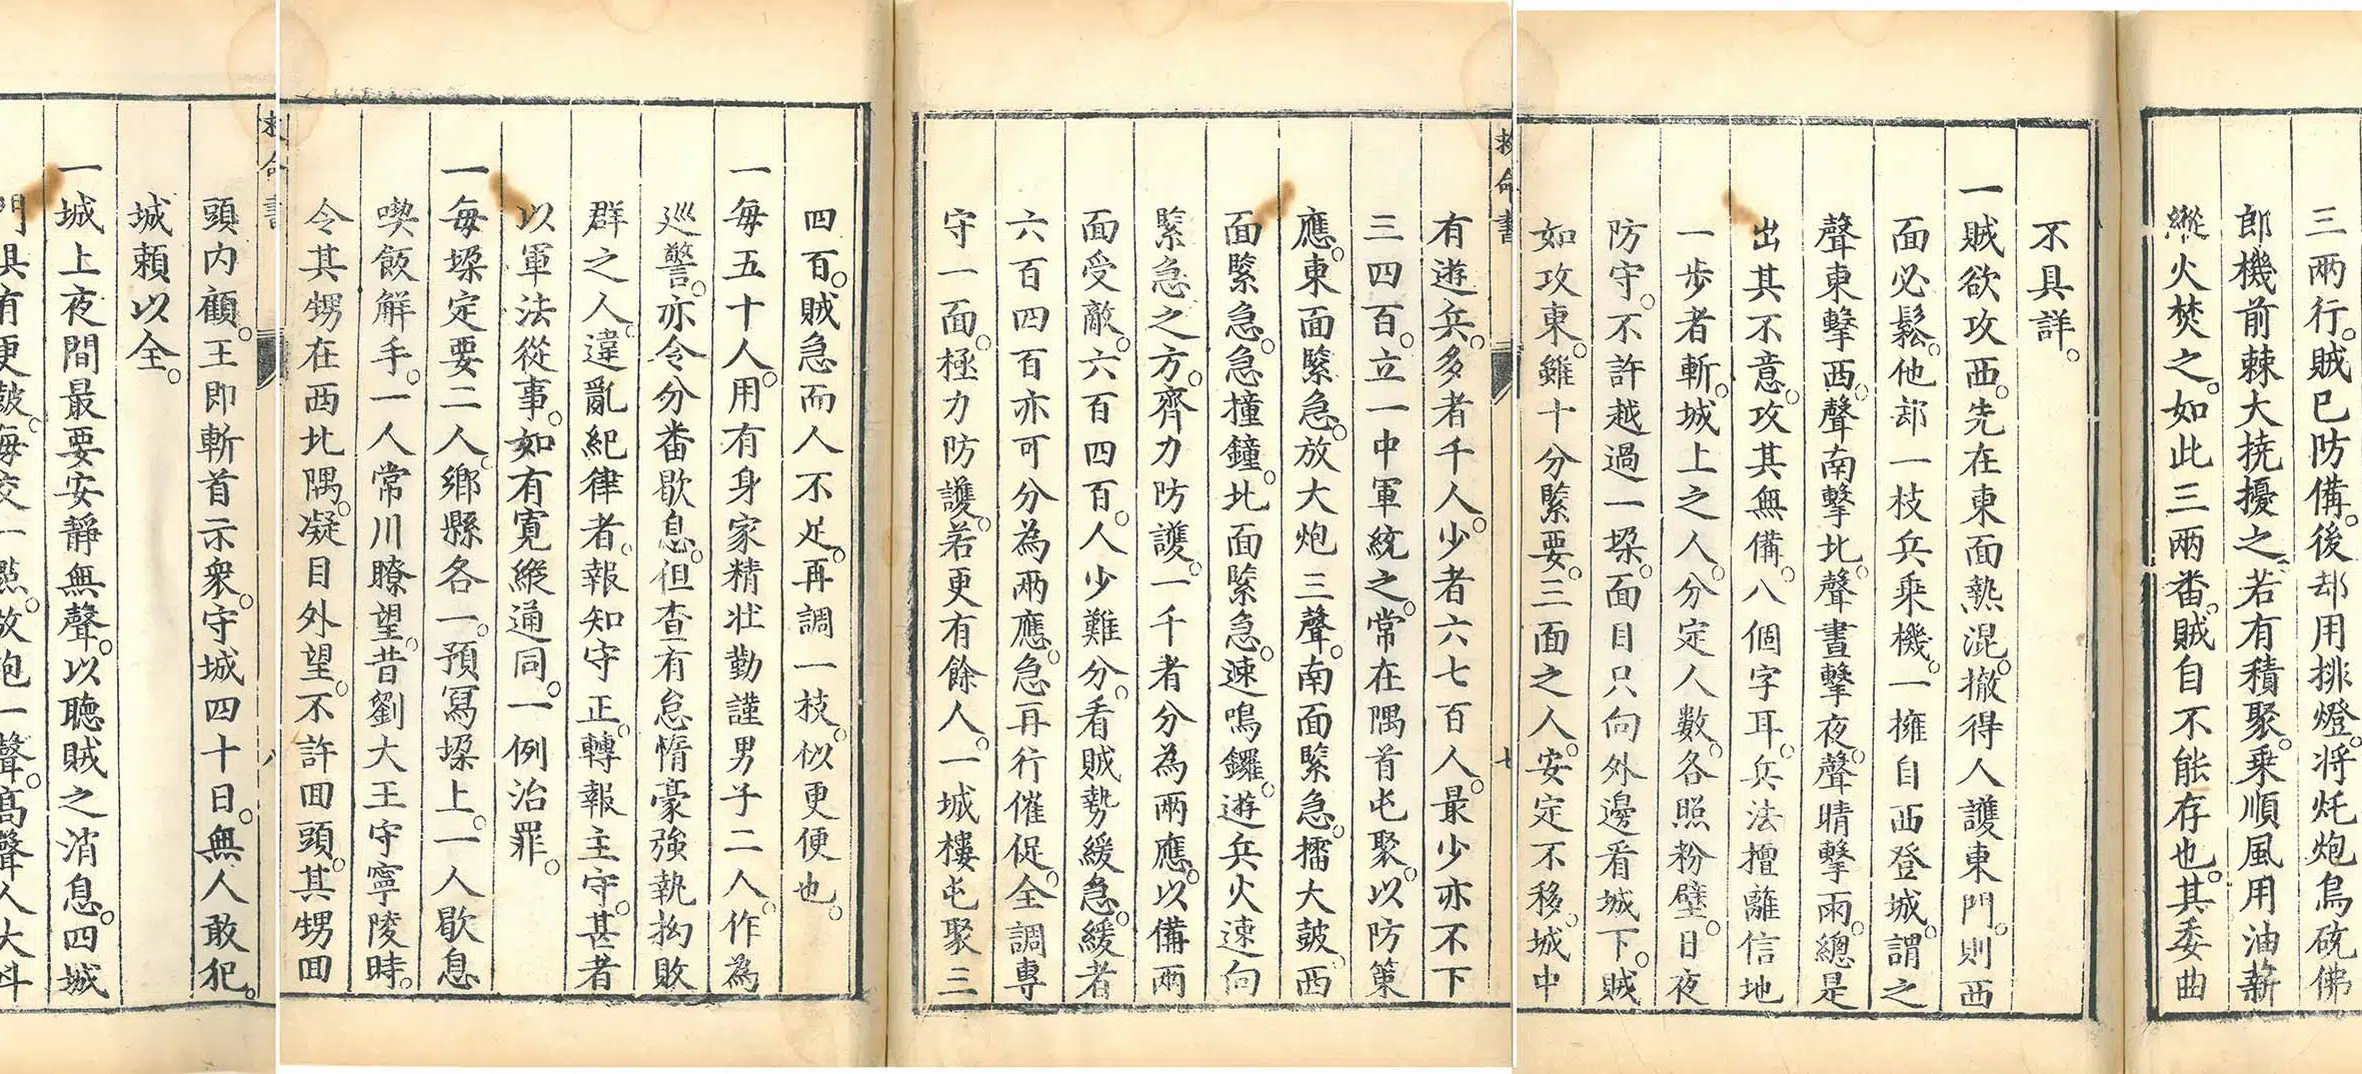 三兩行。賊已防備。後却用排燈。將炮烏銃佛
郎機前棘大撓擾之。若有積聚。乘順風用油薪
縱火焚之。如此三兩番。賊自不能存也。其委曲
不具詳。
一賊欲攻西。先在東面熱混。撤得人護東門。則西
面必鬆。他却一枝兵乘機。一擁自西登城。謂之
聲東擊西。聲南擊北。聲晝擊夜。聲晴擊雨。總是
出其不意。攻其無備。八個字耳。兵法擅離信地
一步者斬。城上之人。分定人數。各照粉壁。日夜
防守。不許越過一垜。面目只向外邊看城下。賊
如攻東。雖十分緊要。三面之人。安定不移。城中
救命書
七
有遊兵。多者千人。少者六七百人。最少亦不下
三四百。立一中軍統之。常在隅首屯聚。以防策
應。東面緊急。放大炮三聲。南面緊急。擂大鼓。西
面緊急。急撞鐘。北面緊急。速鳴鑼。遊兵火速向
緊急之方。齊力防護。一千者分為兩應。以備兩
面受敵。六百四百。人少難分。看賊勢緩急。緩者
六百四百亦可分為兩應。急再行催促。全調專
守一面。極力防護。若更有餘人。一城樓屯聚三
四百。賊急而人不足。再調一枝。似更便也。
一每五十人。用有身家精壯勤謹男子二人。作為
巡警。亦令分番歇息。但查有怠惰豪強執拗敗
群之人。違亂紀律者。報知守正。轉報主守。甚者
以軍法從事。如有寬縱通同。一例治罪。
一每垜定要二人。鄉縣各一。預寫垜上。一人歇息
喫飯解手。一人常川瞭望。昔劉大王守寧陵時。
令其甥在西北隅。凝目外望。不許回頭。其甥回
救命書
八
頭內顧。王即斬首示衆。守城四十日。無人敢犯。
城賴以全。
一城上夜間最要安靜無聲。以聽賊之消息。四城
門具有更鼓。每交一點。放炮一聲。高聲人大料